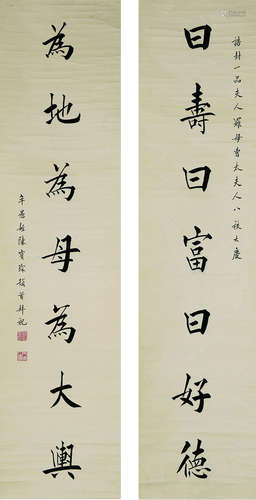 誥封一品夫人羅母曹太夫人八秩大慶
曰壽曰富曰好德
為地為母為大輿
年愚姪陳寶琛頓首拜祝